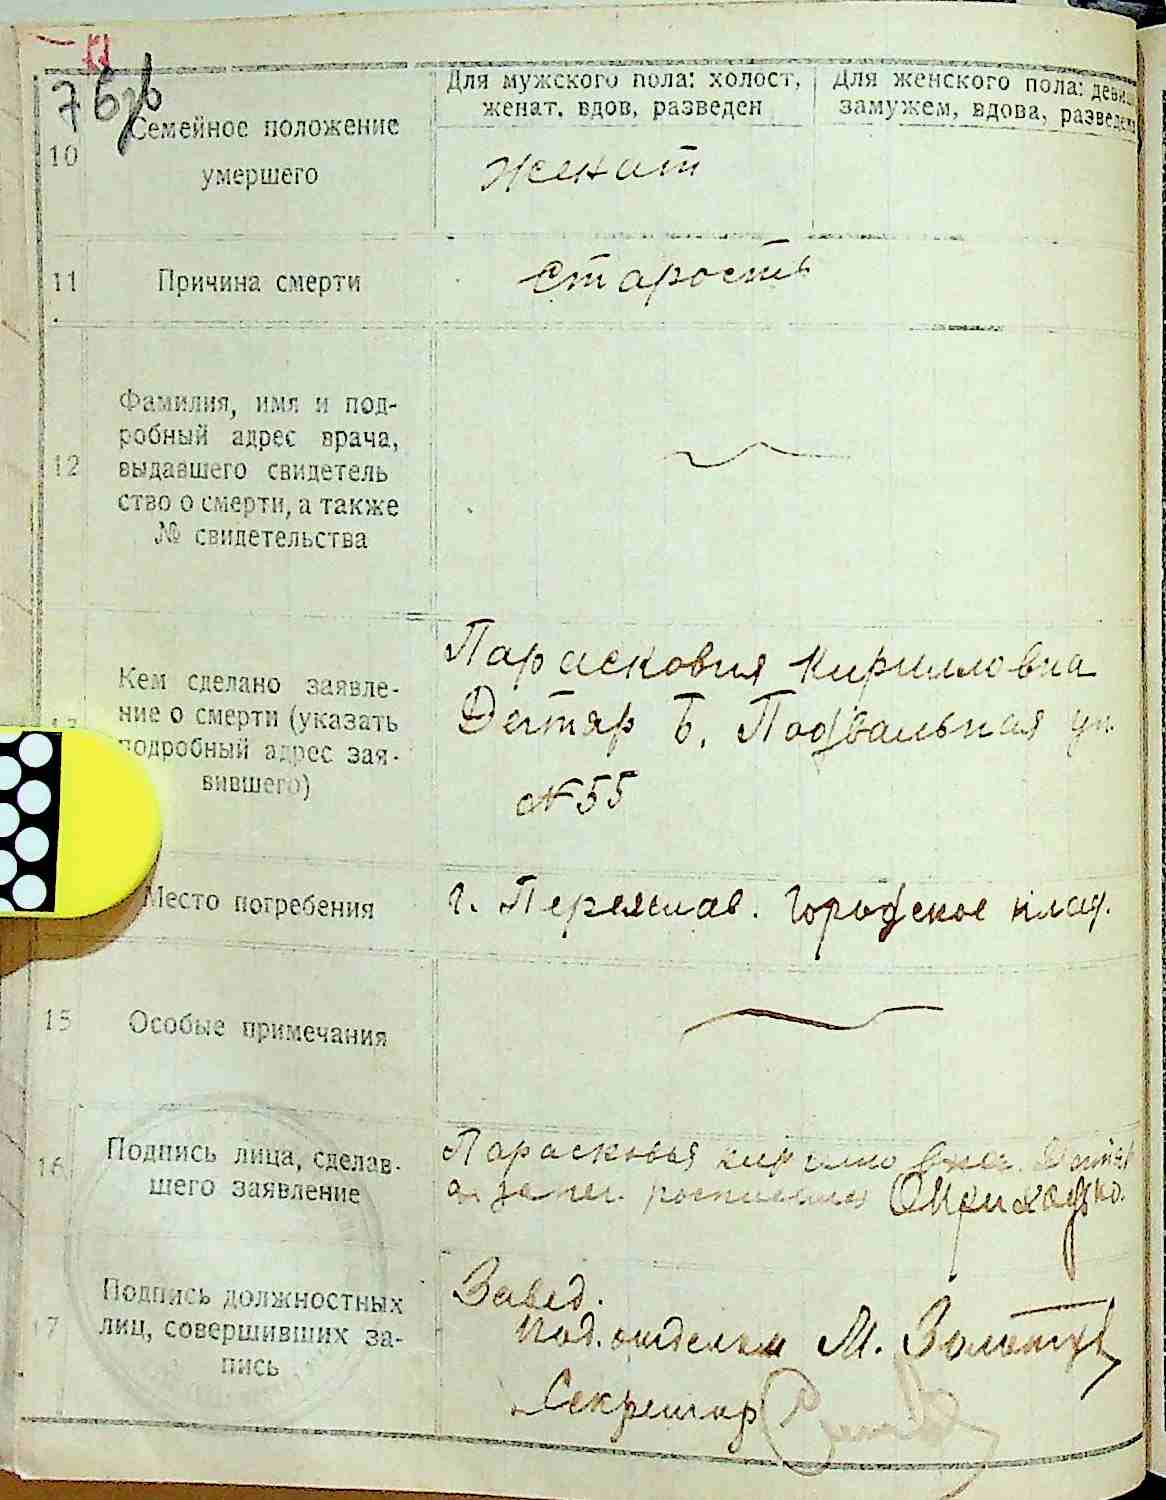 76зв
Для мужского пола: холост, женат, вдов, разведен
Для женского пола: девица, замужем, вдова, разведена
10
Семейное положение
умершего
женат
11
Причина смерти
старость
12
Фамилия, имя и под-
робный адрес врача,
выдавшего свидетель
ство о смерти, а также
№ свидетельства
13
Кем сделано заявле-
ние о смерти (указать
подробный адрес зая-
вившего)
Парасковия Кирилловна
Дегтяр Б. Подвальная ул.
№ 55
Место погребения
г. Переяслав. Городское клад.
15
Особые примечания
16
Подпись лица, сделав-
шего заявление
Парасковья Кирилловна
Приходько.
17
Подпись должностных
лиц, совершивших за-
пись
Завед.
под.отделом М.
Секретар